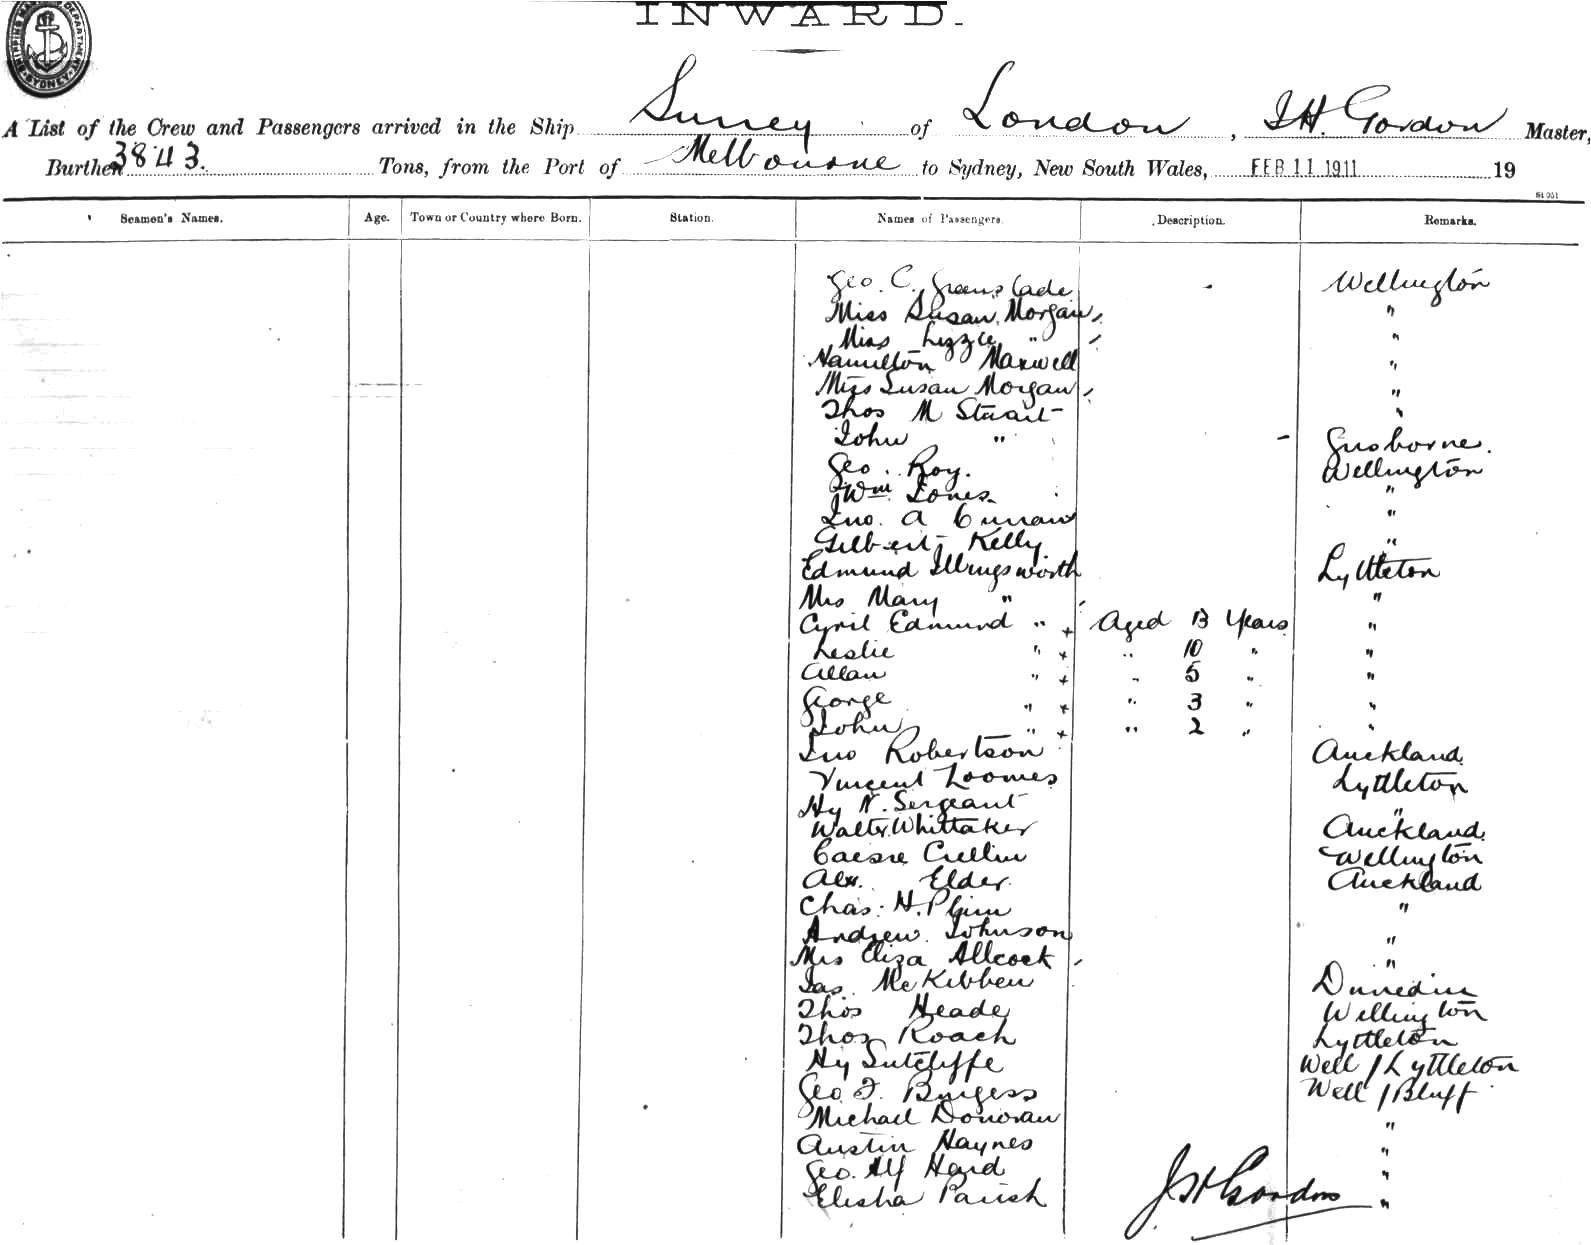 INWARD.
SHIPPING MASTER DEPARTMENT SYDNEY
A List of the Crew and Passengers arrived in the Ship Surrey of London, J H. Gordon Master,
Burthen 3843. Tons, from the Port of Melbourne to Sydney, New South Wales, FEB 11 1911 19
Seamen's Names. Age. Town or Country where Born. Station. Names of Passengers. Description. Remarks.
Geo. C. Greenslade Wellington
Miss Susan Morgan "
Miss Lizzie " "
Hamilton Maxwell "
Miss Susan Morgan "
Thos M Stuart "
John " Gisborne.
Geo. Roy. Wellington
Wm. Jones. "
Jno. A Curran "
Gilbert Kelly "
Edmund Illingsworth Lyttleton
Mrs Mary " "
Cyril Edmund " + Aged 13 Years "
Leslie " + " 10 " "
Allan " + " 5 " "
George " + " 3 " "
John " + " 2 " "
Jno Robertson Auckland
Vincent Loomes Lyttleton
Hy N. Sergeant "
Walter Whittaker Auckland
Wellington
Alex. Elder Auckland
Chas. H. "
Andrew Johnson "
Mrs Eliza Allcock "
Jas. McKibben Dunedin
Thos Heade Wellington
Thos Roach Lyttleton
Hy Sutcliffe Well / Lyttleton
Geo. F. Burgess Well / Bluff
Michael Donovan "
Austin Haynes "
Geo. Alf Hard "
Elisha Parish "
J H Gordon